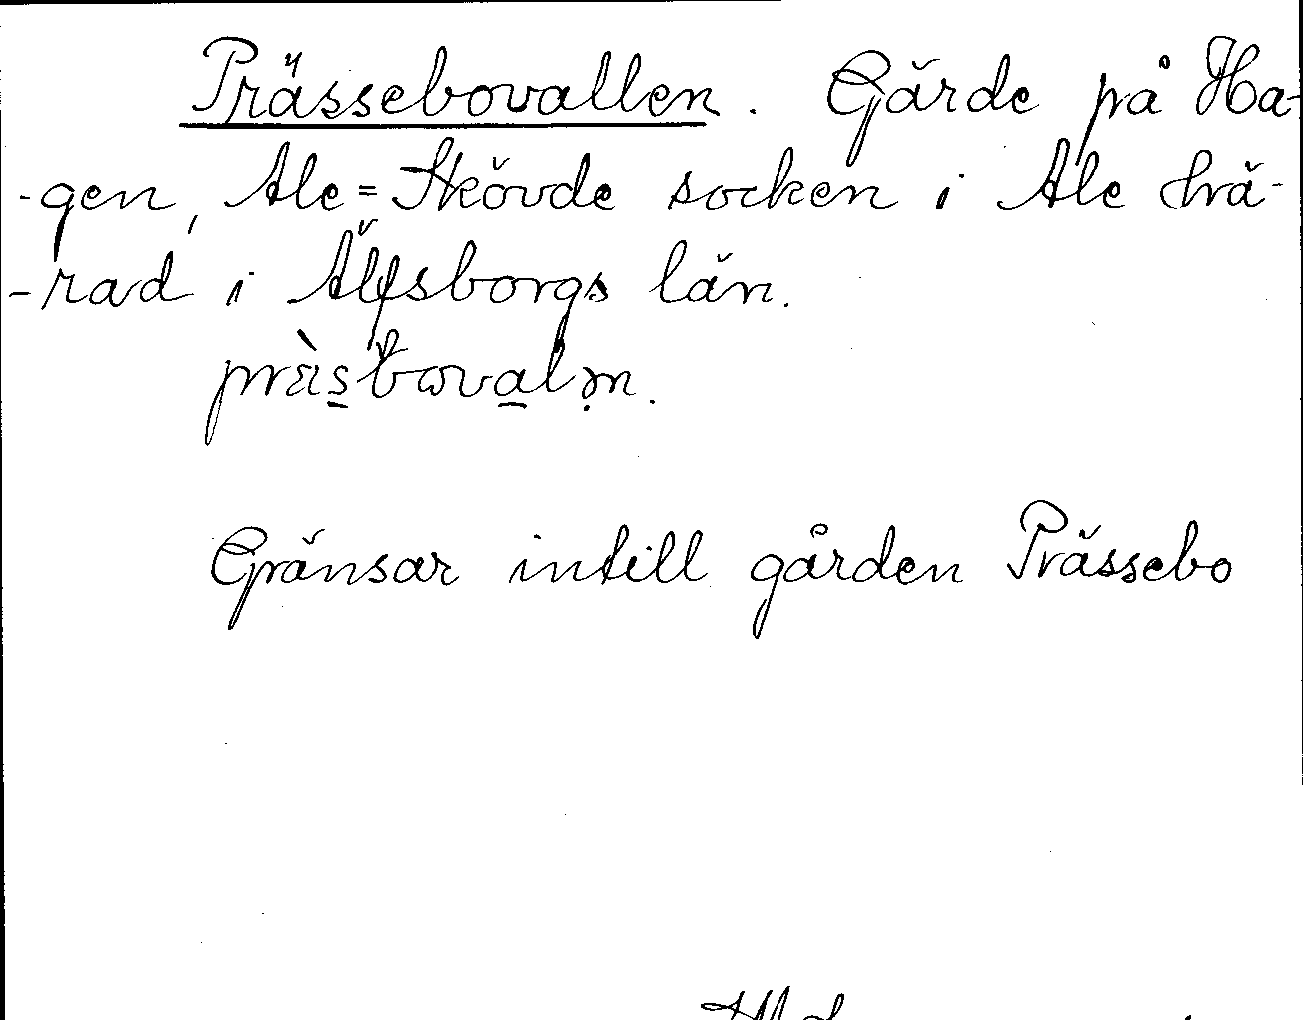 Prässebovallen. Gärde på Ha-
-gen, Ale=Skövde socken i Ale hä-
-rad i Älfsborgs län.
Gränsar intill gården Prässebo